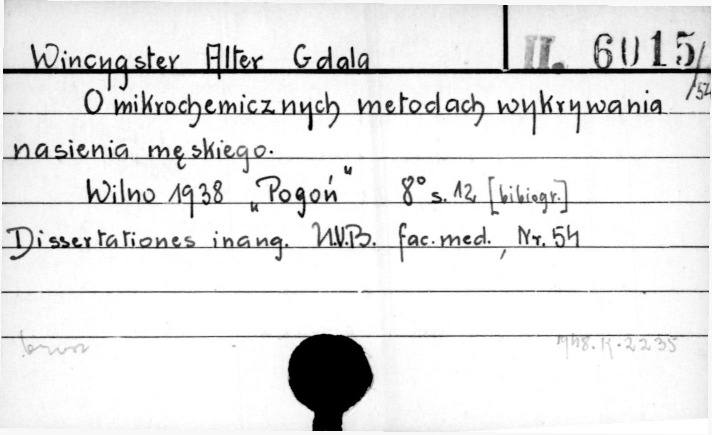 Wincygster Alter Gdala II. 6015/54
O mikrochemicznych metodach wykrywania
nasienia męskiego.
Wilno 1938 „Pogoń" 8° s. 12 [bibiogr.]
Dissertationes inang. U.V.B. fac. med., Nr. 54